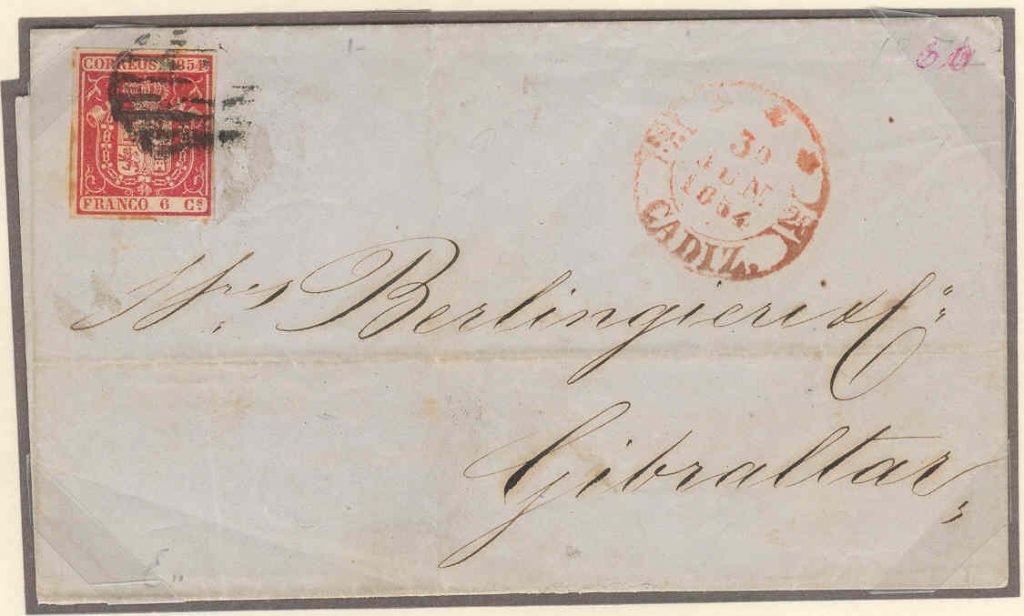 CORREOS 1854
FRANCO 6 Cs
30
JUN
1854
CADIZ
Mrs Berlingieri & Co
Gibraltar